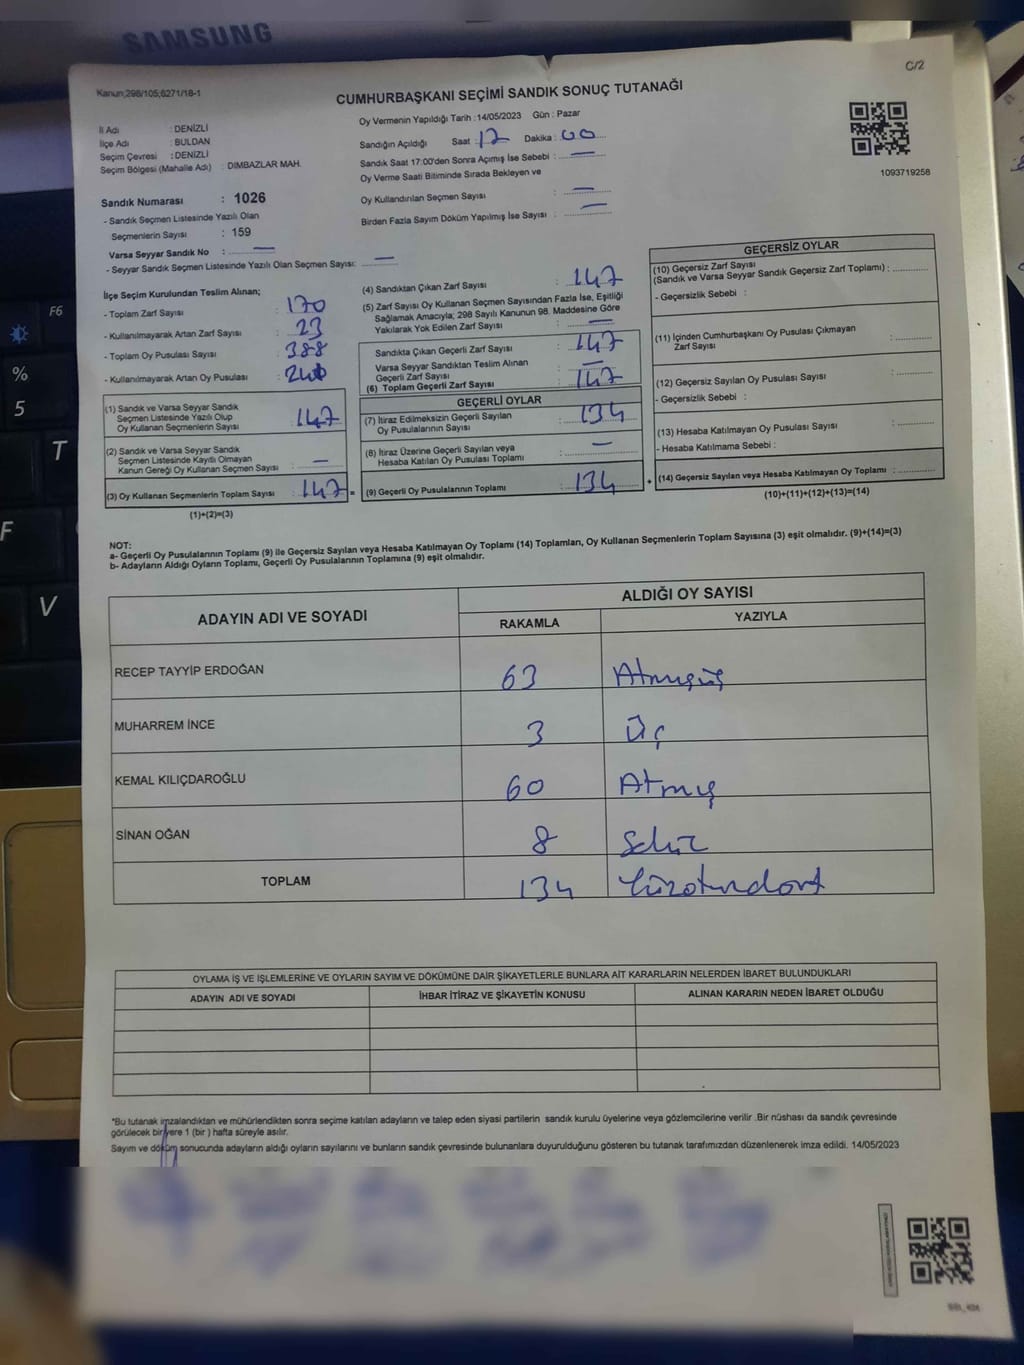 SAMSUNG
C/2
Kanun;298/105;6271/18-1
CUMHURBAŞKANI SEÇİMİ SANDIK SONUÇ TUTANAĞI
Oy Vermenin Yapıldığı Tarih :14/05/2023 Gün : Pazar
İl Adı : DENİZLİ
İlçe Adı : BULDAN
Seçim Çevresi : DENİZLİ
Seçim Bölgesi (Mahalle Adı) : DIMBAZLAR MAH.
Sandığın Açıldığı Saat : 17 Dakika : 00
Sandık Saat 17:00'den Sonra Açımış İse Sebebi : —
Oy Verme Saati Bitiminde Sırada Bekleyen ve
Oy Kullandırılan Seçmen Sayısı : —
Birden Fazla Sayım Döküm Yapılmış İse Sayısı : —
1093719258
Sandık Numarası : 1026
- Sandık Seçmen Listesinde Yazılı Olan
Seçmenlerin Sayısı : 159
Varsa Seyyar Sandık No : —
- Seyyar Sandık Seçmen Listesinde Yazılı Olan Seçmen Sayısı: —
İlçe Seçim Kurulundan Teslim Alınan;
- Toplam Zarf Sayısı : 170
- Kullanılmayarak Artan Zarf Sayısı : 23
- Toplam Oy Pusulası Sayısı : 388
- Kullanılmayarak Artan Oy Pusulası :
(1) Sandık ve Varsa Seyyar Sandık
Seçmen Listesinde Yazılı Olup
Oy Kullanan Seçmenlerin Sayısı : 147
(2) Sandık ve Varsa Seyyar Sandık
Seçmen Listesinde Kayıtlı Olmayan
Kanun Gereği Oy Kullanan Seçmen Sayısı : —
(3) Oy Kullanan Seçmenlerin Toplam Sayısı : 147 =
(1)+(2)=(3)
(4) Sandıktan Çıkan Zarf Sayısı : 147
(5) Zarf Sayısı Oy Kullanan Seçmen Sayısından Fazla İse, Eşitliği
Sağlamak Amacıyla; 298 Sayılı Kanunun 98. Maddesine Göre
Yakılarak Yok Edilen Zarf Sayısı : —
Sandıkta Çıkan Geçerli Zarf Sayısı : 147
Varsa Seyyar Sandıktan Teslim Alınan
Geçerli Zarf Sayısı : —
(6) Toplam Geçerli Zarf Sayısı : 147
GEÇERLİ OYLAR
(7) İtiraz Edilmeksizin Geçerli Sayılan
Oy Pusulalarının Sayısı : 134
(8) İtiraz Üzerine Geçerli Sayılan veya
Hesaba Katılan Oy Pusulası Toplamı : —
(9) Geçerli Oy Pusulalarının Toplamı : 134 +
GEÇERSİZ OYLAR
(10) Geçersiz Zarf Sayısı
(Sandık ve Varsa Seyyar Sandık Geçersiz Zarf Toplamı) :
- Geçersizlik Sebebi :
(11) İçinden Cumhurbaşkanı Oy Pusulası Çıkmayan
Zarf Sayısı :
(12) Geçersiz Sayılan Oy Pusulası Sayısı :
- Geçersizlik Sebebi :
(13) Hesaba Katılmayan Oy Pusulası Sayısı :
- Hesaba Katılmama Sebebi :
(14) Geçersiz Sayılan veya Hesaba Katılmayan Oy Toplamı :
(10)+(11)+(12)+(13)=(14)
NOT:
a- Geçerli Oy Pusulalarının Toplamı (9) ile Geçersiz Sayılan veya Hesaba Katılmayan Oy Toplamı (14) Toplamları, Oy Kullanan Seçmenlerin Toplam Sayısına (3) eşit olmalıdır. (9)+(14)=(3)
b- Adayların Aldığı Oyların Toplamı, Geçerli Oy Pusulalarının Toplamına (9) eşit olmalıdır.
ADAYIN ADI VE SOYADI
ALDIĞI OY SAYISI
RAKAMLA YAZIYLA
RECEP TAYYİP ERDOĞAN 63 Atmışüş
MUHARREM İNCE 3 Üç
KEMAL KILIÇDAROĞLU 60 Atmış
SİNAN OĞAN 8 Sekiz
TOPLAM 134 Yüzotuzdört
OYLAMA İŞ VE İŞLEMLERİNE VE OYLARIN SAYIM VE DÖKÜMÜNE DAİR ŞİKAYETLERLE BUNLARA AİT KARARLARIN NELERDEN İBARET BULUNDUKLARI
ADAYIN ADI VE SOYADI İHBAR İTİRAZ VE ŞİKAYETİN KONUSU ALINAN KARARIN NEDEN İBARET OLDUĞU
*Bu tutanak imzalandıktan ve mühürlendikten sonra seçime katılan adayların ve talep eden siyasi partilerin sandık kurulu üyelerine veya gözlemcilerine verilir .Bir nüshası da sandık çevresinde
görülecek bir yere 1 (bir ) hafta süreyle asılır.
Sayım ve döküm sonucunda adayların aldığı oyların sayılarını ve bunların sandık çevresinde bulunanlara duyurulduğunu gösteren bu tutanak tarafımızdan düzenlenerek imza edildi. 14/05/2023
F6
%
5
T
F
V